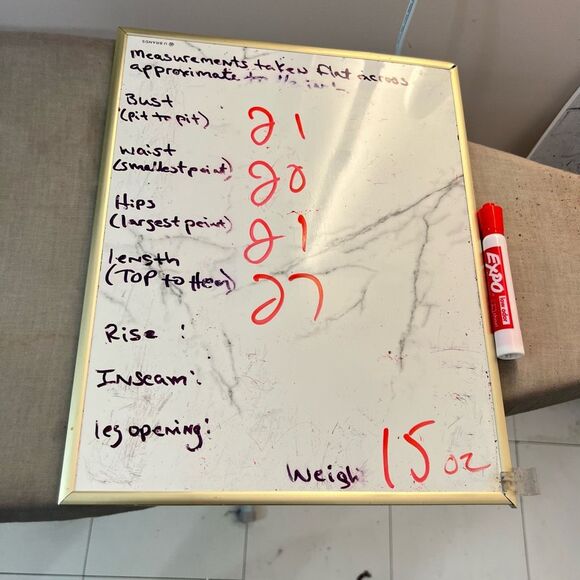 U BRANDS
measurements taken flat across
approximate to the
Bust
(pit to pit) 21
waist
(smallest point) 20
Hips
(largest point) 21
length
(TOP to Hem) 27
Rise :
Inseam:
leg opening:
Weigh 15 oz
EXPO